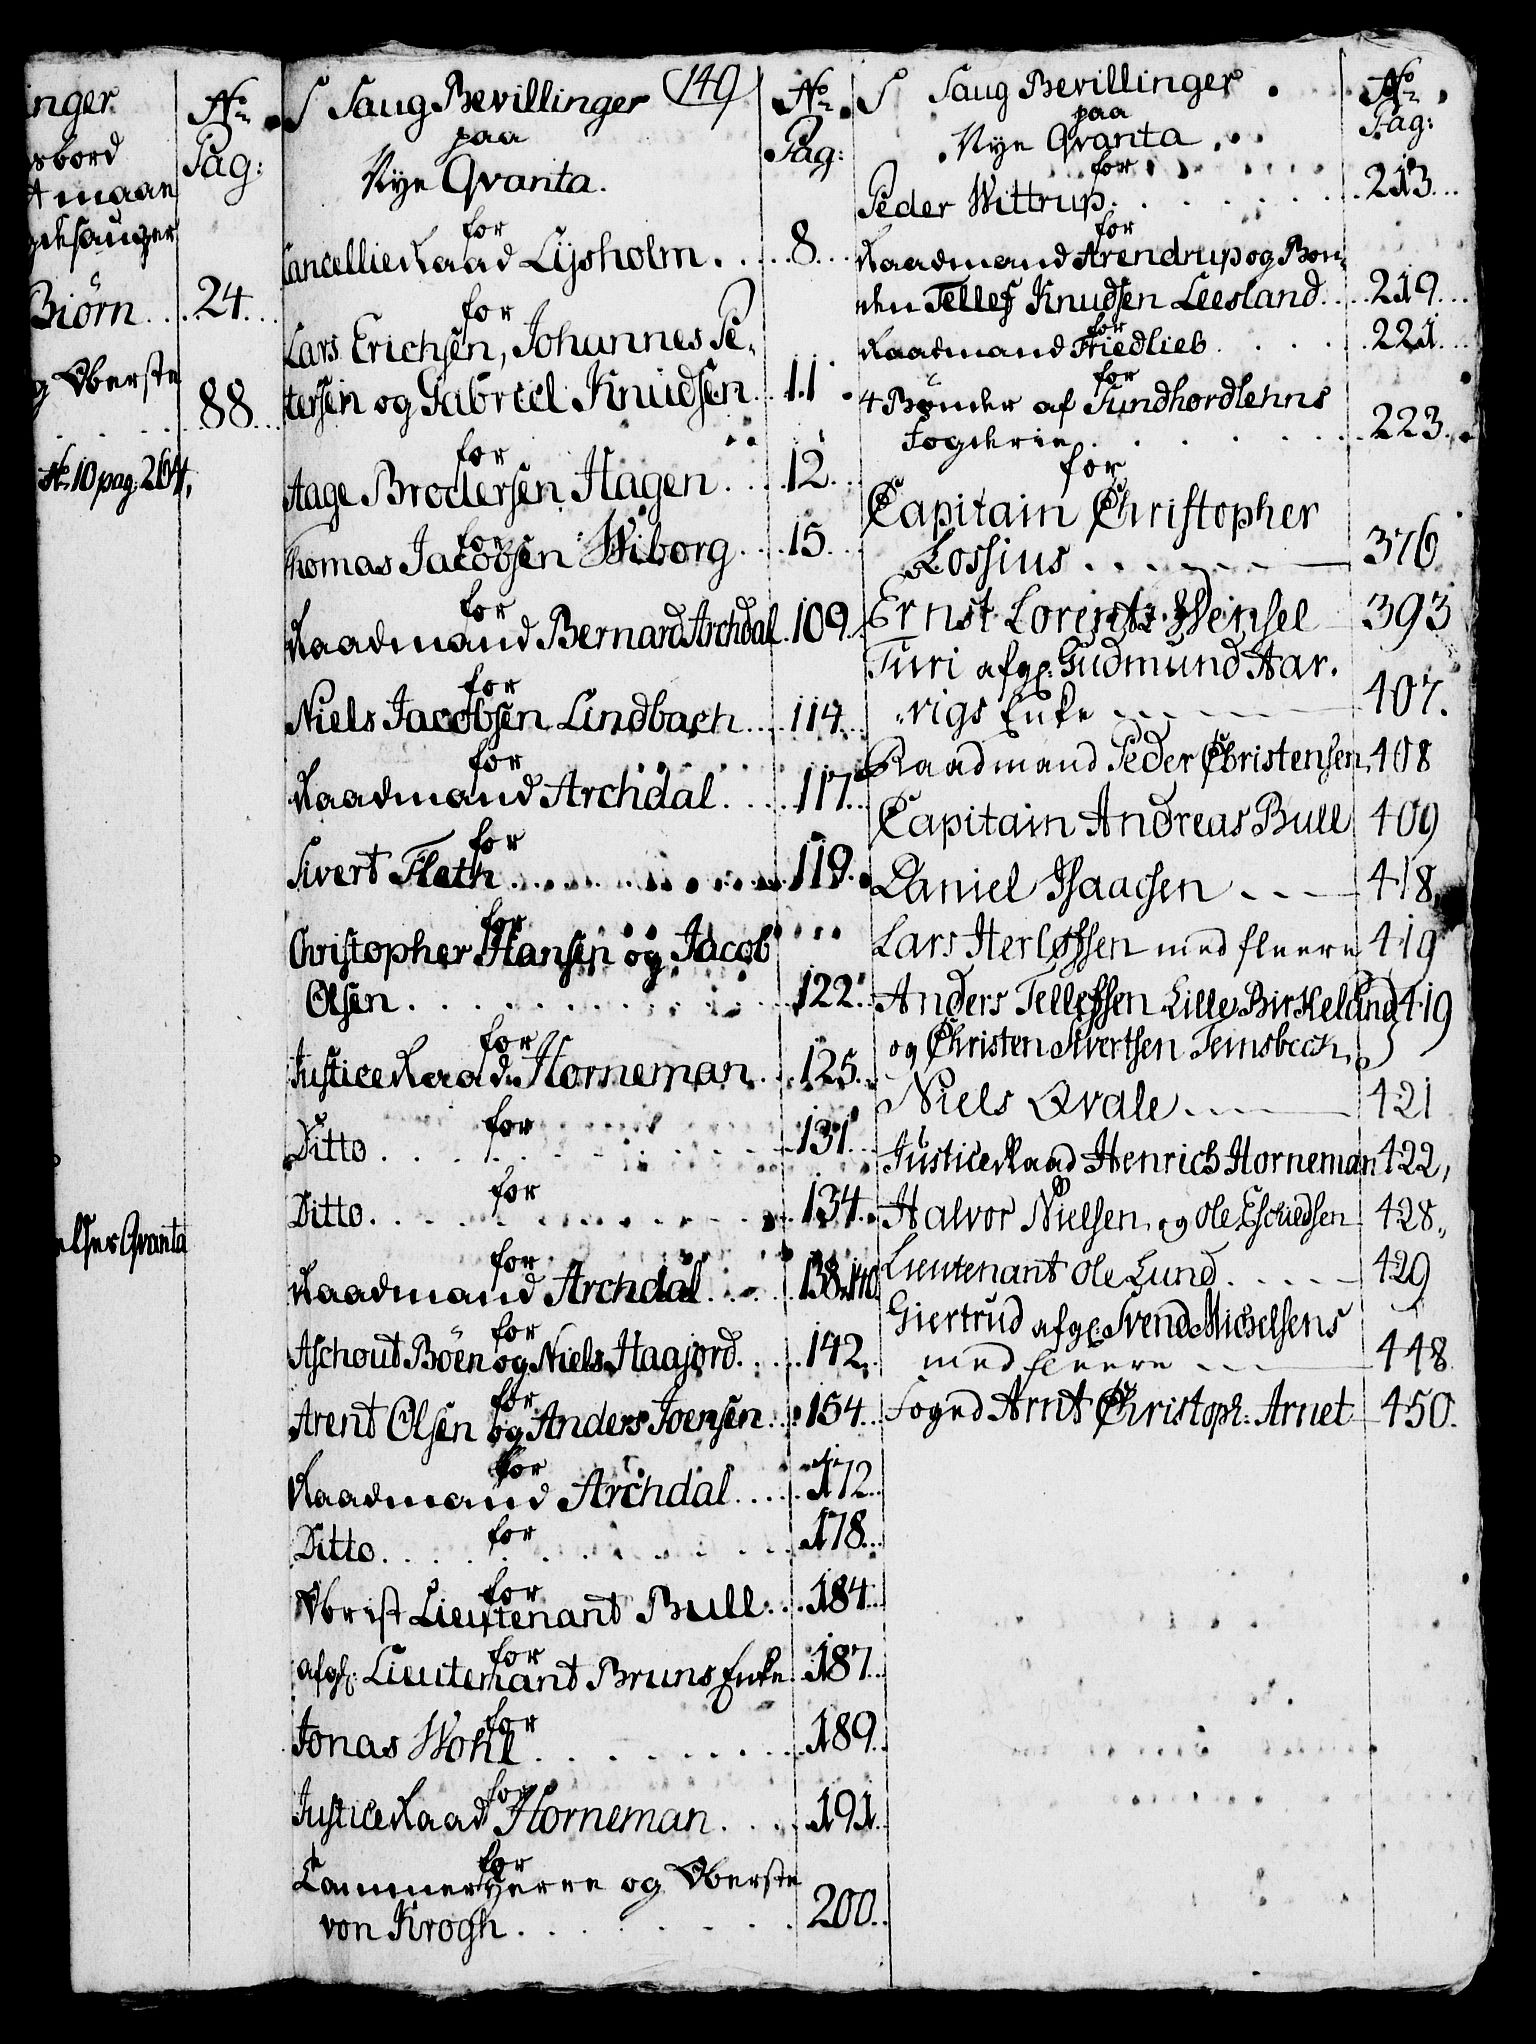 inger.
No
sbord
Pag:
maan
Biörn . . . 24 . . .
g Oberste
88 . . .
No 10 pag: 264,
elser Qvanta
S Saug Bevillinger (149)
No
paa
Pag:
Nye Qvanta.
for
Cancellie Raad Lysholm . . . . 8 . . .
for
Lars Erichsen, Johannes Pe-
tersen og Gabriel Knudsen . . 11
for
Aage Brodersen Hagen . . . . 12 . . .
for
Thomas Jacobsen Wiborg . . . 15 . . .
for
Raadmand Bernard Archdal . 109 . .
for
Niels Jacobsen Lindbach . . . 114 . . .
for
Raadmand Archdal . . . . 117 . . .
for
Sivert Fleth . . . . . . . . 119 . .
for
Christopher Hansen og Jacob
Olsen . . . . . . . . . 122 . . .
for
Justice Raad Horneman . . . 125 . . .
for
Ditto . . . . . . . . . 131 . . .
for
Ditto . . . . . . . . . 134 . . .
for
Raadmand Archdal . . . . 138.140
for
Aschout Böen og Niels Haajord . . . 142 . .
for
Arent Olsen og Anders Joensen . . . 154 . . .
for
Raadmand Archdal . . . . 172 . .
for
Ditto . . . . . . . . . 178 . . .
for
Obrist Lieutenant Bull . . . 184 . . .
for
afgl: Lieutenant Bruns Enke . 187 . .
for
Jonas Wohl . . . . . . . . 189 . .
for
Justice Raad Horneman . . . . 191 . .
for
Cammerherre og Oberste
von Krogh . . . . . . . . 200 . .
S Saug Bevillinger
No
paa
Pag:
Nye Qvanta
for
Peder Wittrup . . . . . . . 213 . . .
for
Raadmand Arendrup og Bon-
den Tellef Knudsen Leesland . . . 219 . . .
for
Raadmand Friedlieb . . . . . 221 . . .
for
4 Bönder af Sundhordlehns
Fogderie . . . . . . . . 223 . .
for
Capitain Christopher
Lossius . . . . . . 376
Ernst Lorentz Wensel 393
Turi afgl: Gudmund Aar-
vigs Enke 407.
Raadmand Peder Christensen, 408
Capitain Andreas Bull 409
Daniel Isaachsen 418,
Lars Herlofssen med fleere 419
Anders Tellefssen Lille Birkeland } 419
og Christen Sivertsen Temsbech
Niels Qvale 421
Justice Raad Henrich Horneman 422,
Halvor Nielsen og Ole Eschedsen 428,,
Lieutenant Ole Lund 429
Giertrud afgl: Svend Michelsens
med fleere 448
Foged Arnt Christoph: Arnet 450.